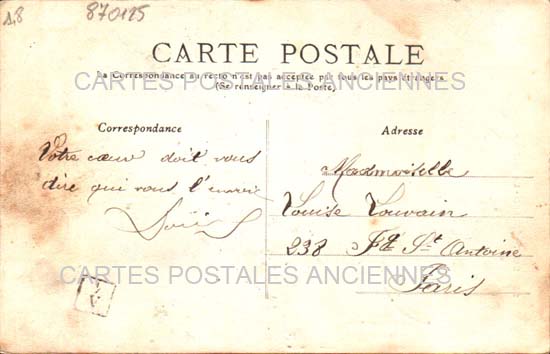 A.8 870115
CARTE POSTALE
La Correspondance au recto n'est pas acceptée par tous les pays étrangers
(Se renseigner à la Poste)
CARTES POSTALES ANCIENNES
Correspondance
Votre cœur doit vous
dire qui vous l'envoie
Louis
Adresse
Mademoiselle
Louise Louvain
238 Fg St Antoine
Paris
CARTES POSTALES ANCIENNES